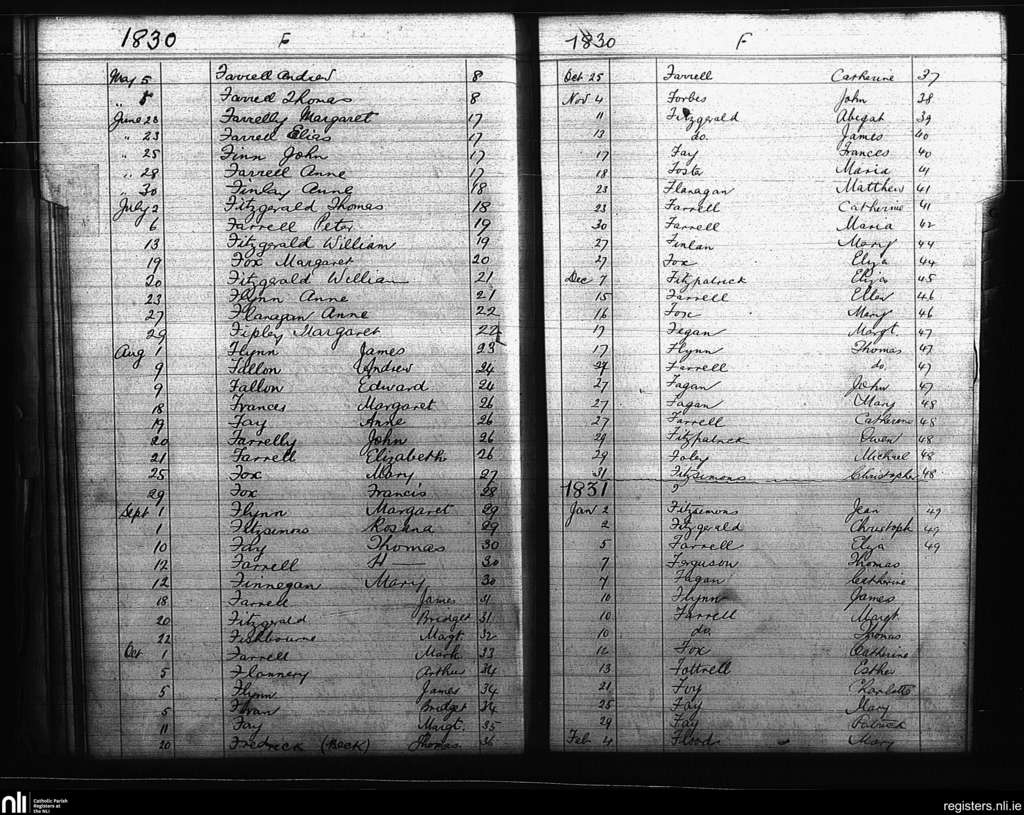 1830 F
May 5 Farrell Andrew 8
" 5 Farrell Thomas 8
June 23 Farrelly Margaret 17
" 23 Farrell Elias 17
" 25 Finn John 17
" 28 Farrell Anne 17
" 30 Finlay Anne 18
July 2 Fitzgerald Thomas 18
6 Farrell Peter 19
13 Fitzgerald William 19
19 Fox Margaret 20
20 Fitzgerald William 21
23 Flynn Anne 21
27 Flanagan Anne 22
29 Margaret 22
Aug 1 Flynn James 23
9 Fallon Andrew 24
9 Fallon Edward 24
18 Frances Margaret 26
19 Fay Anne 26
20 Farrelly John 26
21 Farrell Elizabeth 26
25 Fox Mary 27
29 Fox Francis 28
Sept 1 Flynn Margaret 29
1 Fitzsimons Rosana 29
10 Fay Thomas 30
12 Farrell H — 30
12 Finnegan Mary 30
18 Farrell James 31
20 Fitzgerald Bridget 31
22 Fishbourne Margt. 32
Oct 1 Farrell Mark 33
5 Flannery Arthur 34
5 Flynn James 34
5 Bridget 34
11 Fay Margt. 35
20 Fredrick (Beck) Thomas 36
1830 F
Oct 25 Farrell Catherine 37
Nov 4 Forbes John 38
11 Fitzgerald Abigal 39
13 do. James 40
17 Fay Frances 40
18 Foster Maria 41
23 Flanagan Matthew 41
23 Farrell Catherine 41
30 Farrell Maria 42
27 Finlan Mary 44
27 Fox Eliza 44
Dec 7 Fitzpatrick Eliza 45
15 Farrell Ellen 46
16 Fox Mary 46
17 Fegan Margt. 47
17 Flynn Thomas 47
27 Farrell do. 47
27 Fagan John 47
27 Fagan Mary 48
27 Farrell Catherine 48
29 Fitzpatrick Owen 48
29 Foley Michael 48
31 Fitzsimons Christopher 48
1831
Jan 2 Fitzsimons Jean 49
2 Fitzgerald Christoph 49
5 Farrell Eliza 49
7 Ferguson Thomas
7 Fagan Catherine
10 Flynn James
10 Farrell Margt.
10 do. Thomas
12 Fox Catherine
13 Fottrell Esther
21 Foy Charlotte
25 Fay Mary
29 Fay Patrick
Feb 4 Flood Mary
nli Catholic Parish
Registers at
the NLI
registers.nli.ie